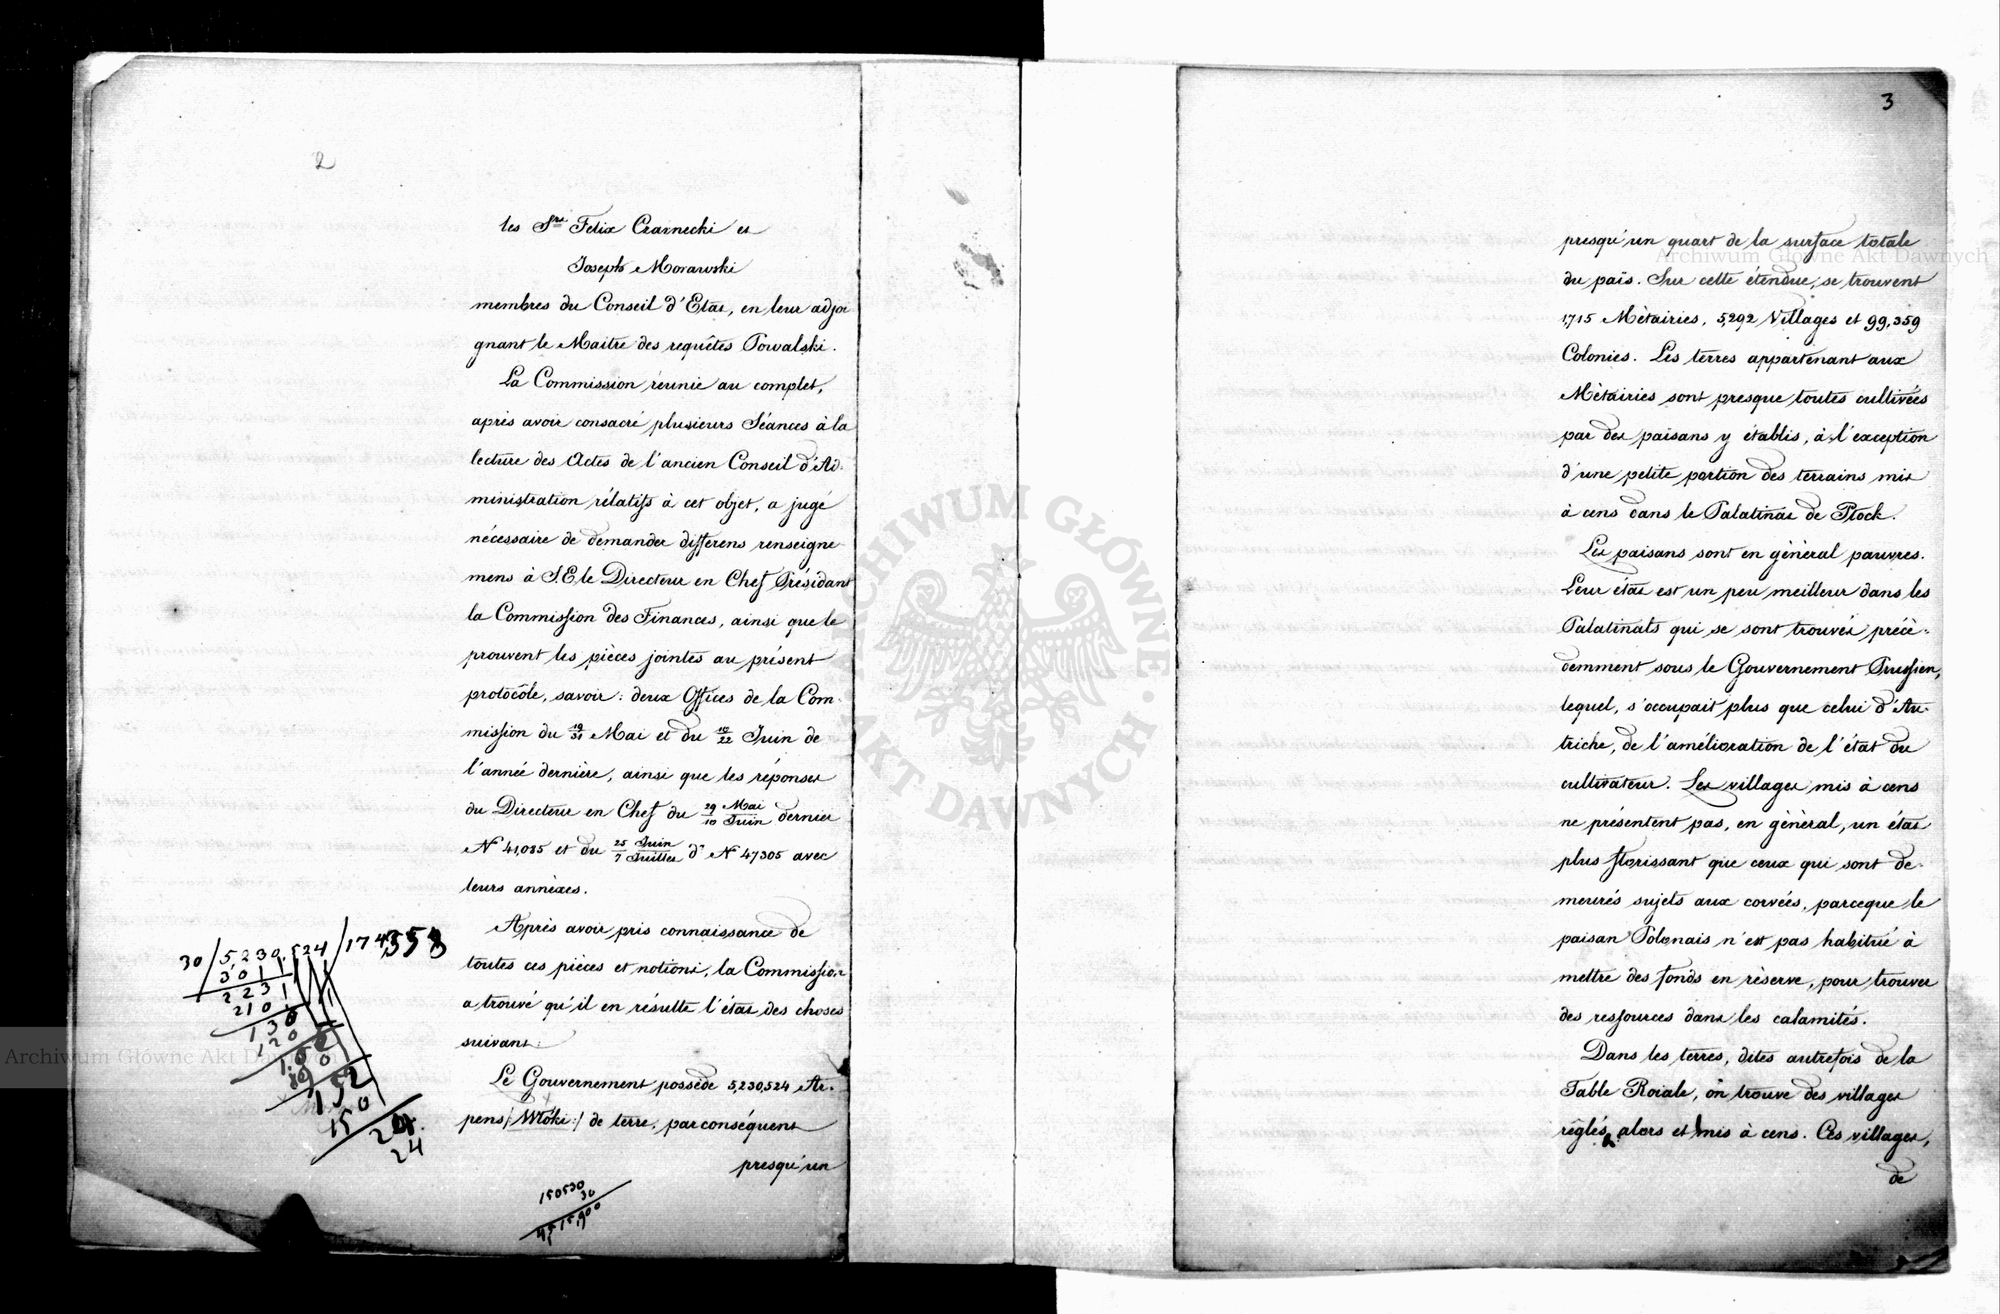 2
les Srs Felix Czarnecki et
Joseph Morawski
membres du Conseil d'Etat, en leur adjoi
gnant le Maitre des requêtes Powalski.
La Commission réunie au complet,
après avoir consacré plusieurs Séances à la
lecture des Actes de l'ancien Conseil d'Ad-
ministration rélatifs à cet objet, a jugé
nécessaire de demander differens renseigne-
mens à S.E le Directeur en Chef Présidant
la Commission des Finances, ainsi que le
prouvent les pièces jointes au présent
protocôle, savoir: deux Offices de la Com-
mission du 19/31 Mai et du 10/22 Juin de
l'année dernière, ainsi que les réponses
du Directeur en Chef du 29 Mai/10 Juin dernier
N 41,085 et du 25 Juin/7 Juillet d° N 47305 avec
leurs annèxes.
Après avoir pris connaissance de
toutes ces pièces et notions, la Commission
a trouvé qu'il en résulte l'état des choses
suivant:
Le Gouvernement possède 5,230,524 Ar-
pens /:Włóki:/ de terre, par conséquent
presqu'un
30/5,230,524/174,353
301
223
210
130
120
152
150
24
24
150530
30
4515,900
3
presqu'un quart de la surface totale
du païs. Sur cette étendue, se trouvent
1,715 Mètairies, 5,292 Villages et 99,359
Colonies. Les terres appartenant aux
Mètairies sont presque toutes cultivées
par des païsans y établis, à l'exception
d'une petite portion des terrains mis
à cens dans le Palatinat de Płock.
Les païsans sont en gènèral pauvres.
Leur état est un peu meilleur dans les
Palatinats qui se sont trouvés précè-
demment sous le Gouvernement Prussien,
lequel, s'occupait plus que celui d'Au-
triche, de l'amélioration de l'état du
cultivateur. Les villages mis à cens
ne présentent pas, en gènèral, un état
plus florissant que ceux qui sont de-
meurés sujets aux corvées, parceque le
paisan Polonais n'est pas habitué à
mettre des fonds en rèserve, pour trouver
des ressources dans les calamités.
Dans les terres, dites autrefois de la
Table Roiale, on trouve des villages
règlés alors et mis à cens. Ces villages,
de
Archiwum Główne Akt Dawnych
ARCHIWUM GŁÓWNE · AKT DAWNYCH ·
Archiwum Główne Akt Dawnych